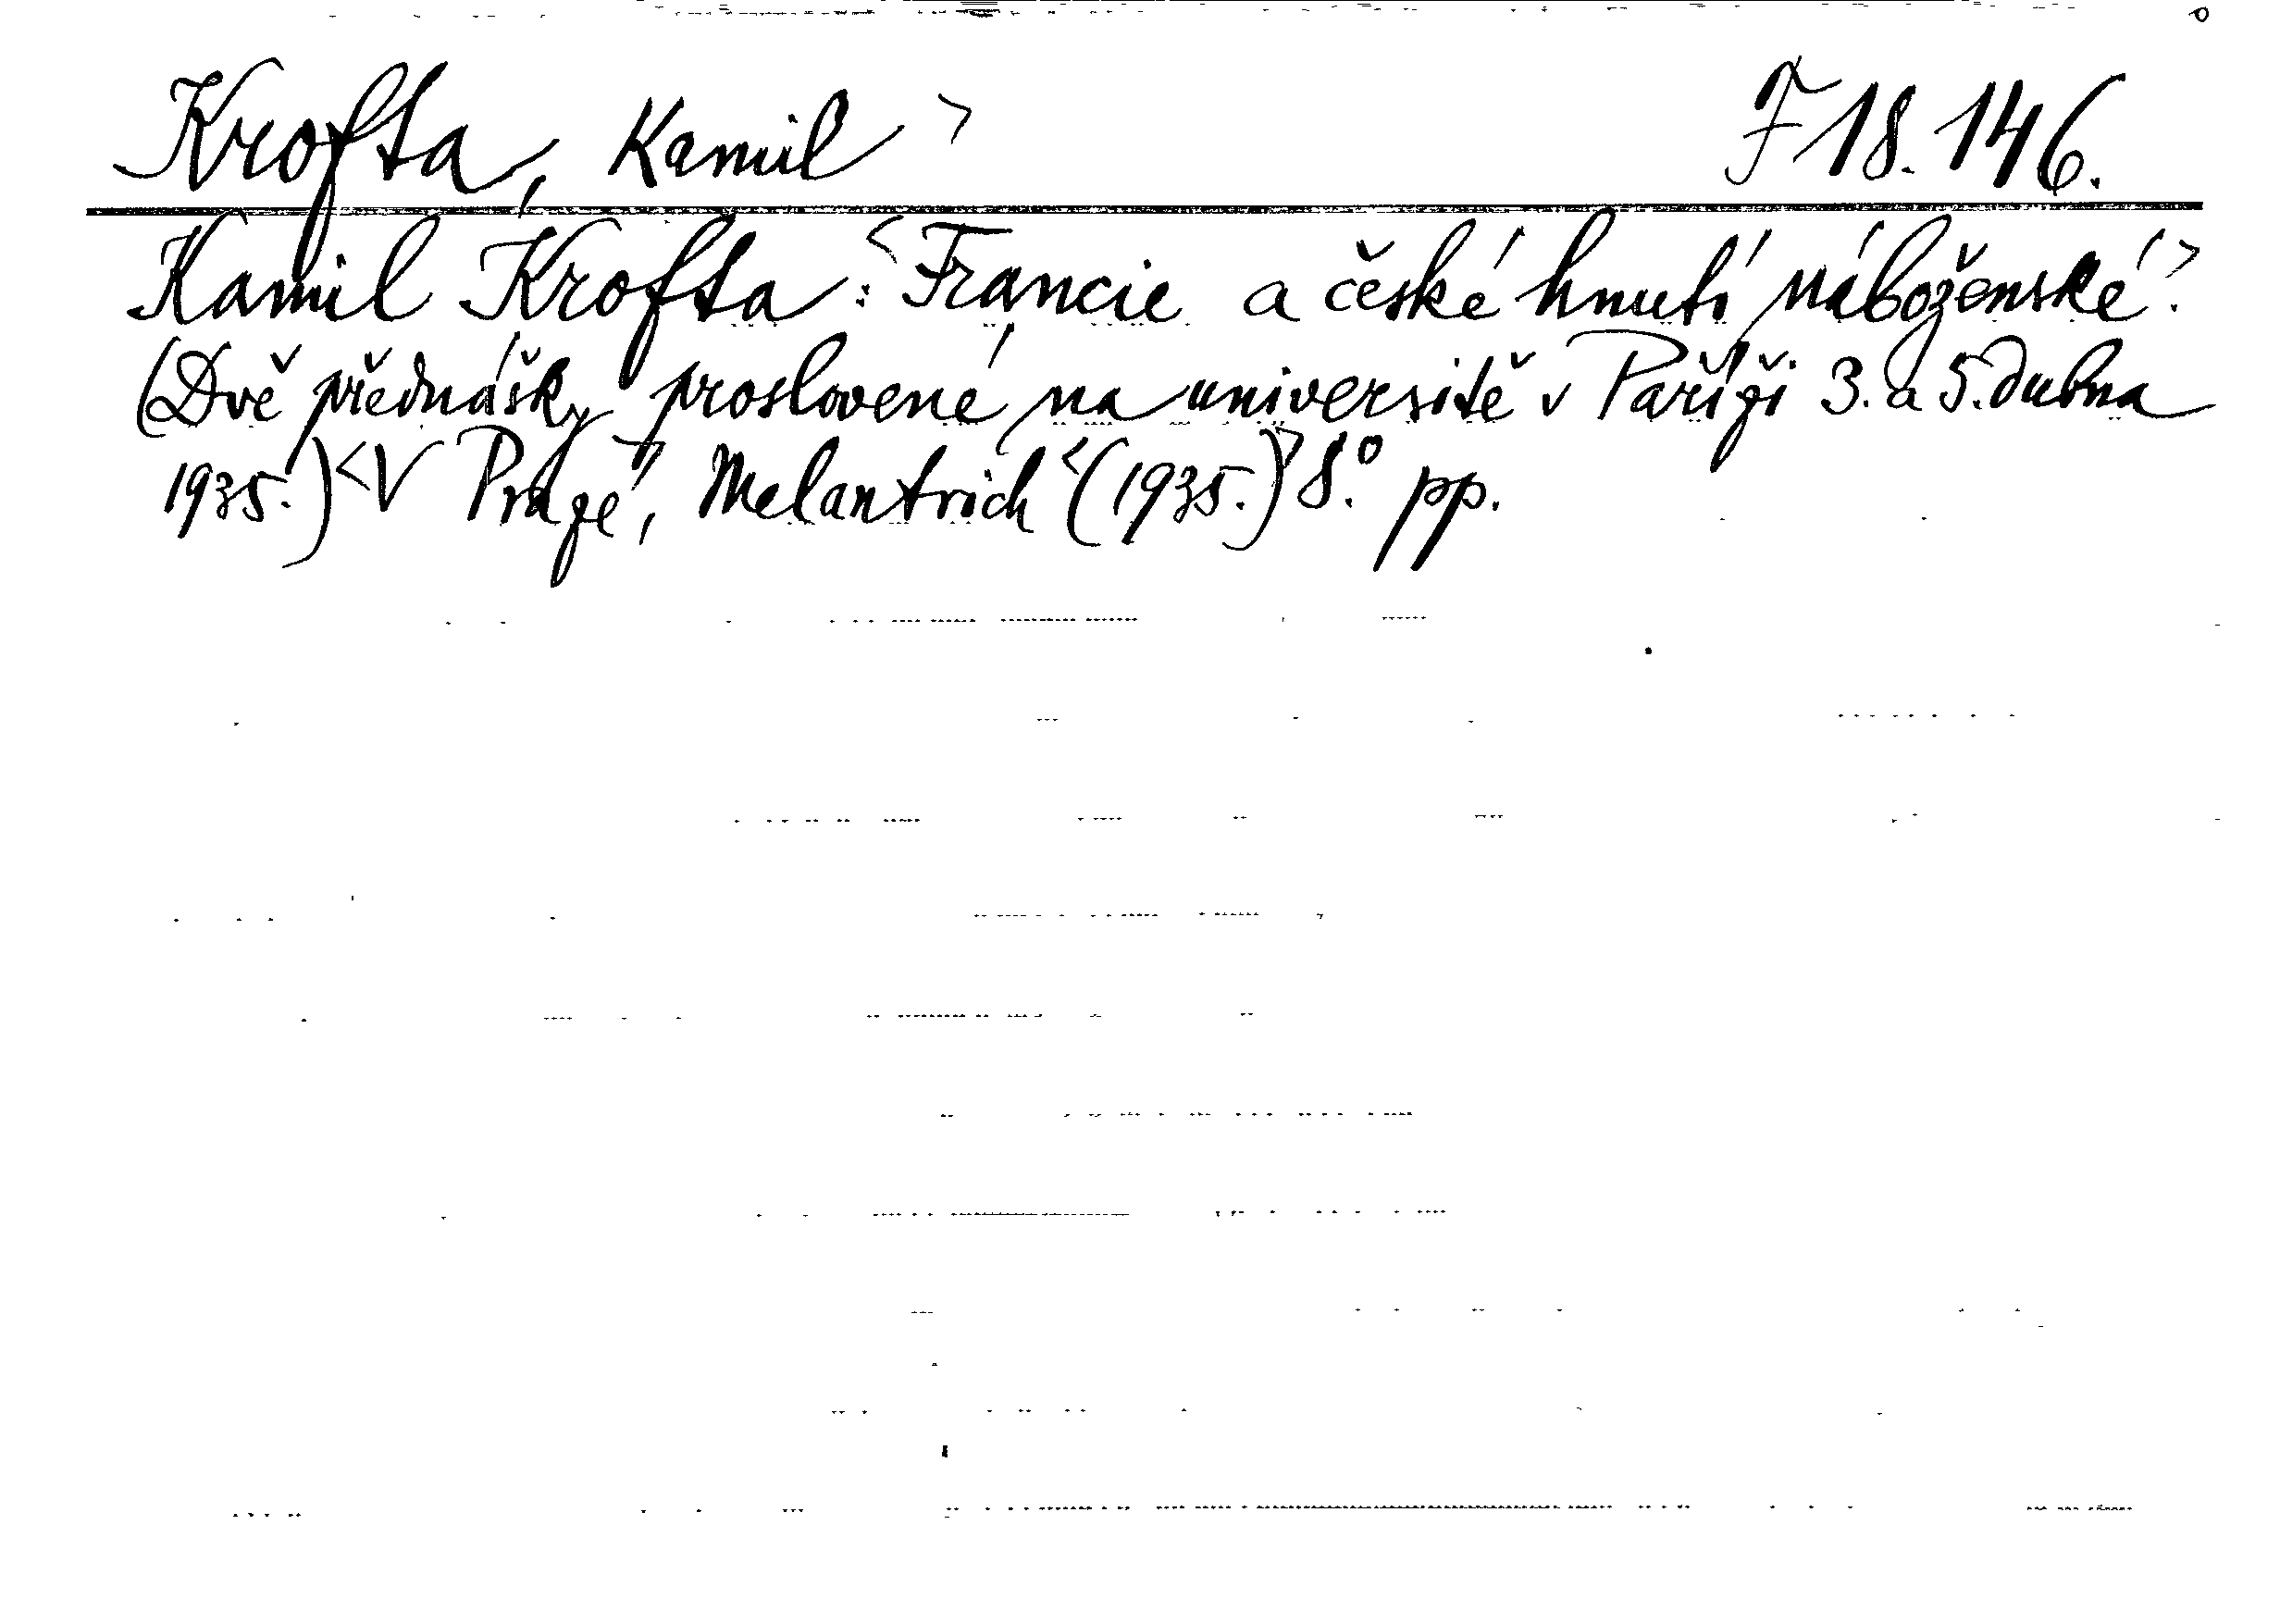 Krofta, Kamil > F 18.146.
Kamil Krofta: <Francie a české hnutí náboženské.>
(Dvě přednášky proslovené na universitě v Paříži 3. a 5. dubna
1935.) <V Praze, Melantrich <(1935.)> 8.° pp.